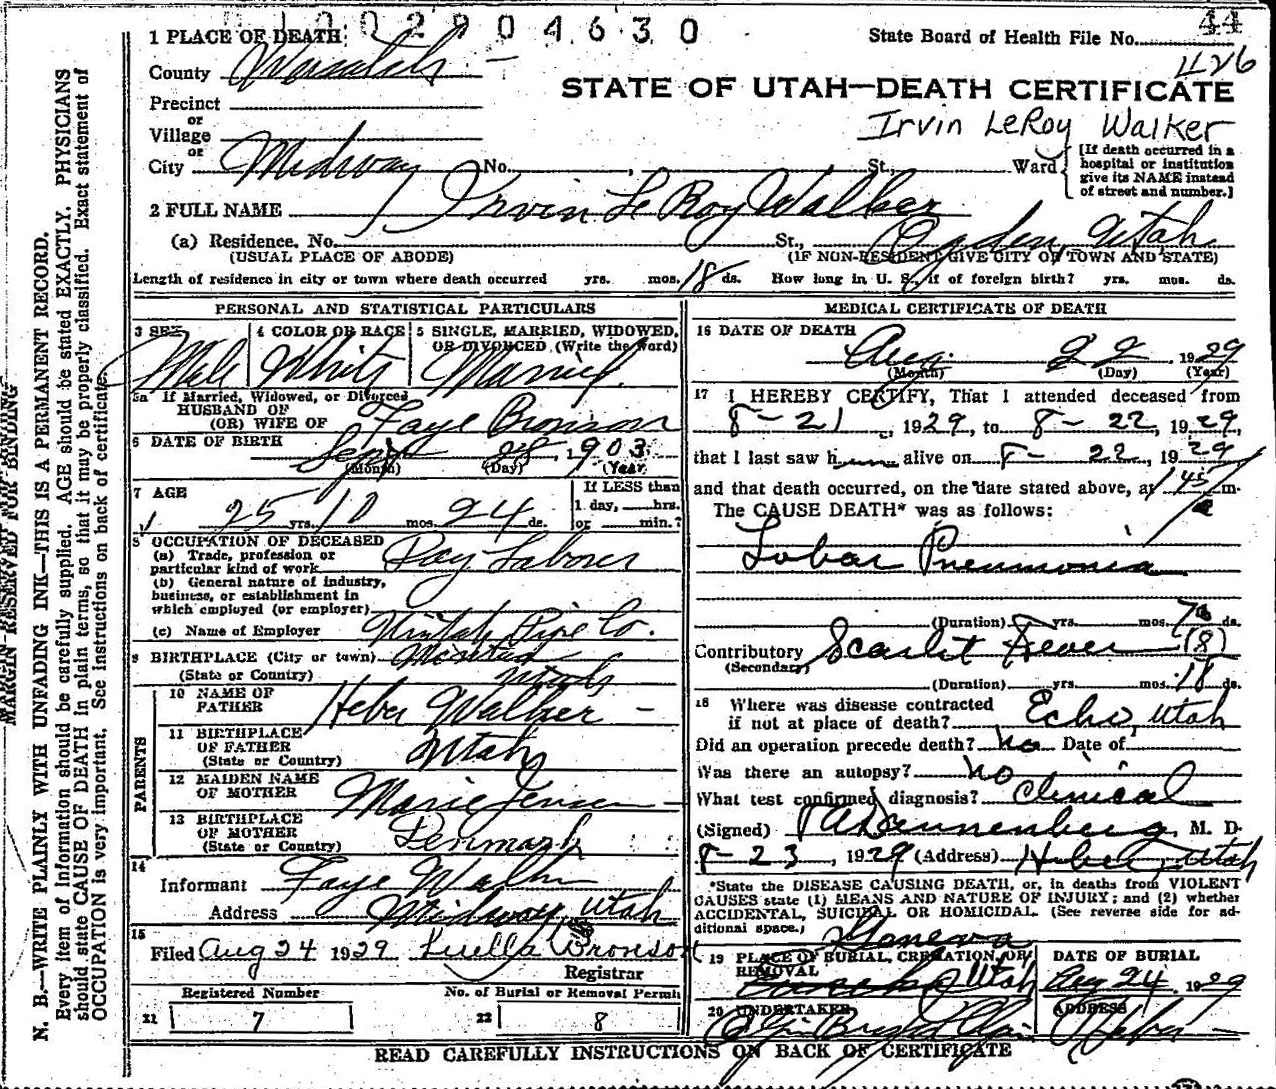 1002904630
44
1 PLACE OF DEATH
State Board of Health File No.
426
County Wasatch
STATE OF UTAH—DEATH CERTIFICATE
Precinct
or
Village
or
Irvin LeRoy Walker
City Midway No. , St., Ward
[If death occurred in a hospital or institution give its NAME instead of street and number.]
2 FULL NAME Irvin LeRoy Walker
(a) Residence. No. St., Ogden, Utah
(USUAL PLACE OF ABODE) (IF NON-RESIDENT GIVE CITY OR TOWN AND STATE)
Length of residence in city or town where death occurred yrs. mos. 18 ds. How long in U. S., if of foreign birth? yrs. mos. ds.
PERSONAL AND STATISTICAL PARTICULARS
3 SEX 4 COLOR OR RACE 5 SINGLE, MARRIED, WIDOWED,
OR DIVORCED (Write the word)
Male White Married
5a If Married, Widowed, or Divorced
HUSBAND OF
(OR) WIFE OF Faye Bronson
6 DATE OF BIRTH
Sept 28, 1903
(Month) (Day) (Year)
7 AGE
If LESS than
1 day, hrs.
25 yrs. 10 mos. 24 ds. or min.?
8 OCCUPATION OF DECEASED
(a) Trade, profession or
particular kind of work Day Laborer
(b) General nature of industry,
business, or establishment in
which employed (or employer)
(c) Name of Employer Pipe Co.
9 BIRTHPLACE (City or town)
(State or Country) Utah
PARENTS
10 NAME OF
FATHER Heber Walker
11 BIRTHPLACE
OF FATHER
(State or Country) Utah
12 MAIDEN NAME
OF MOTHER Marie Jensen
13 BIRTHPLACE
OF MOTHER
(State or Country) Denmark
14
Informant Faye Walker
Address Midway, Utah
15
Filed Aug 24 1929 Luella Bronson
Registrar
Registered Number No. of Burial or Removal Permit
21 7 22 8
MEDICAL CERTIFICATE OF DEATH
16 DATE OF DEATH
Aug. 22, 1929
(Month) (Day) (Year)
17 I HEREBY CERTIFY, That I attended deceased from
8-21, 1929, to 8-22, 1929,
that I last saw him alive on 8-22, 1929
and that death occurred, on the date stated above, at 1 45 m.
The CAUSE DEATH* was as follows:
Lobar Pneumonia
(Duration) yrs. mos. 7 ds.
Contributory Scarlet Fever (8)
(Secondary)
(Duration) yrs. mos. 18 ds.
18 Where was disease contracted
if not at place of death? Echo, Utah
Did an operation precede death? No Date of
Was there an autopsy? no
What test confirmed diagnosis? Clinical
(Signed) Dannenberg, M. D.
8-23, 1929 (Address) Heber, Utah
*State the DISEASE CAUSING DEATH, or, in deaths from VIOLENT
CAUSES state (1) MEANS AND NATURE OF INJURY; and (2) whether
ACCIDENTAL, SUICIDAL OR HOMICIDAL. (See reverse side for ad-
ditional space.)
Geneva
19 PLACE OF BURIAL, CREMATION, OR
REMOVAL
Utah
DATE OF BURIAL
Aug 24, 1929
20 UNDERTAKER
ADDRESS
Heber
READ CAREFULLY INSTRUCTIONS ON BACK OF CERTIFICATE
MARGIN RESERVED FOR BINDING
N. B.—WRITE PLAINLY WITH UNFADING INK—THIS IS A PERMANENT RECORD.
Every item of information should be carefully supplied. AGE should be stated EXACTLY. PHYSICIANS
should state CAUSE OF DEATH in plain terms, so that it may be properly classified. Exact statement of
OCCUPATION is very important. See instructions on back of certificate.